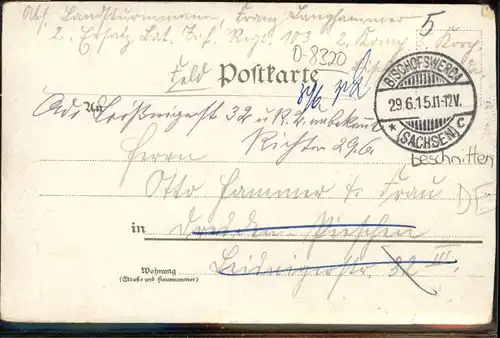 Abs. Landsturmmann Franz Langhammer
2. Ersatz Bat. Inf. Regt. 103 2. Komp.
5
D-8320
Feld Postkarte
BISCHOFSWERDA
29.6.15.11-12V.
* (SACHSEN) c
An
Adr. Leißnigerst 32 u R.L. unbekannt
Richter 29 6.
beschnitten
Herrn
Otto Hammer u. Frau
in Dresden-Pieschen
Wohnung
(Straße und Hausnummer)
Leisnigerstr. 32 III.